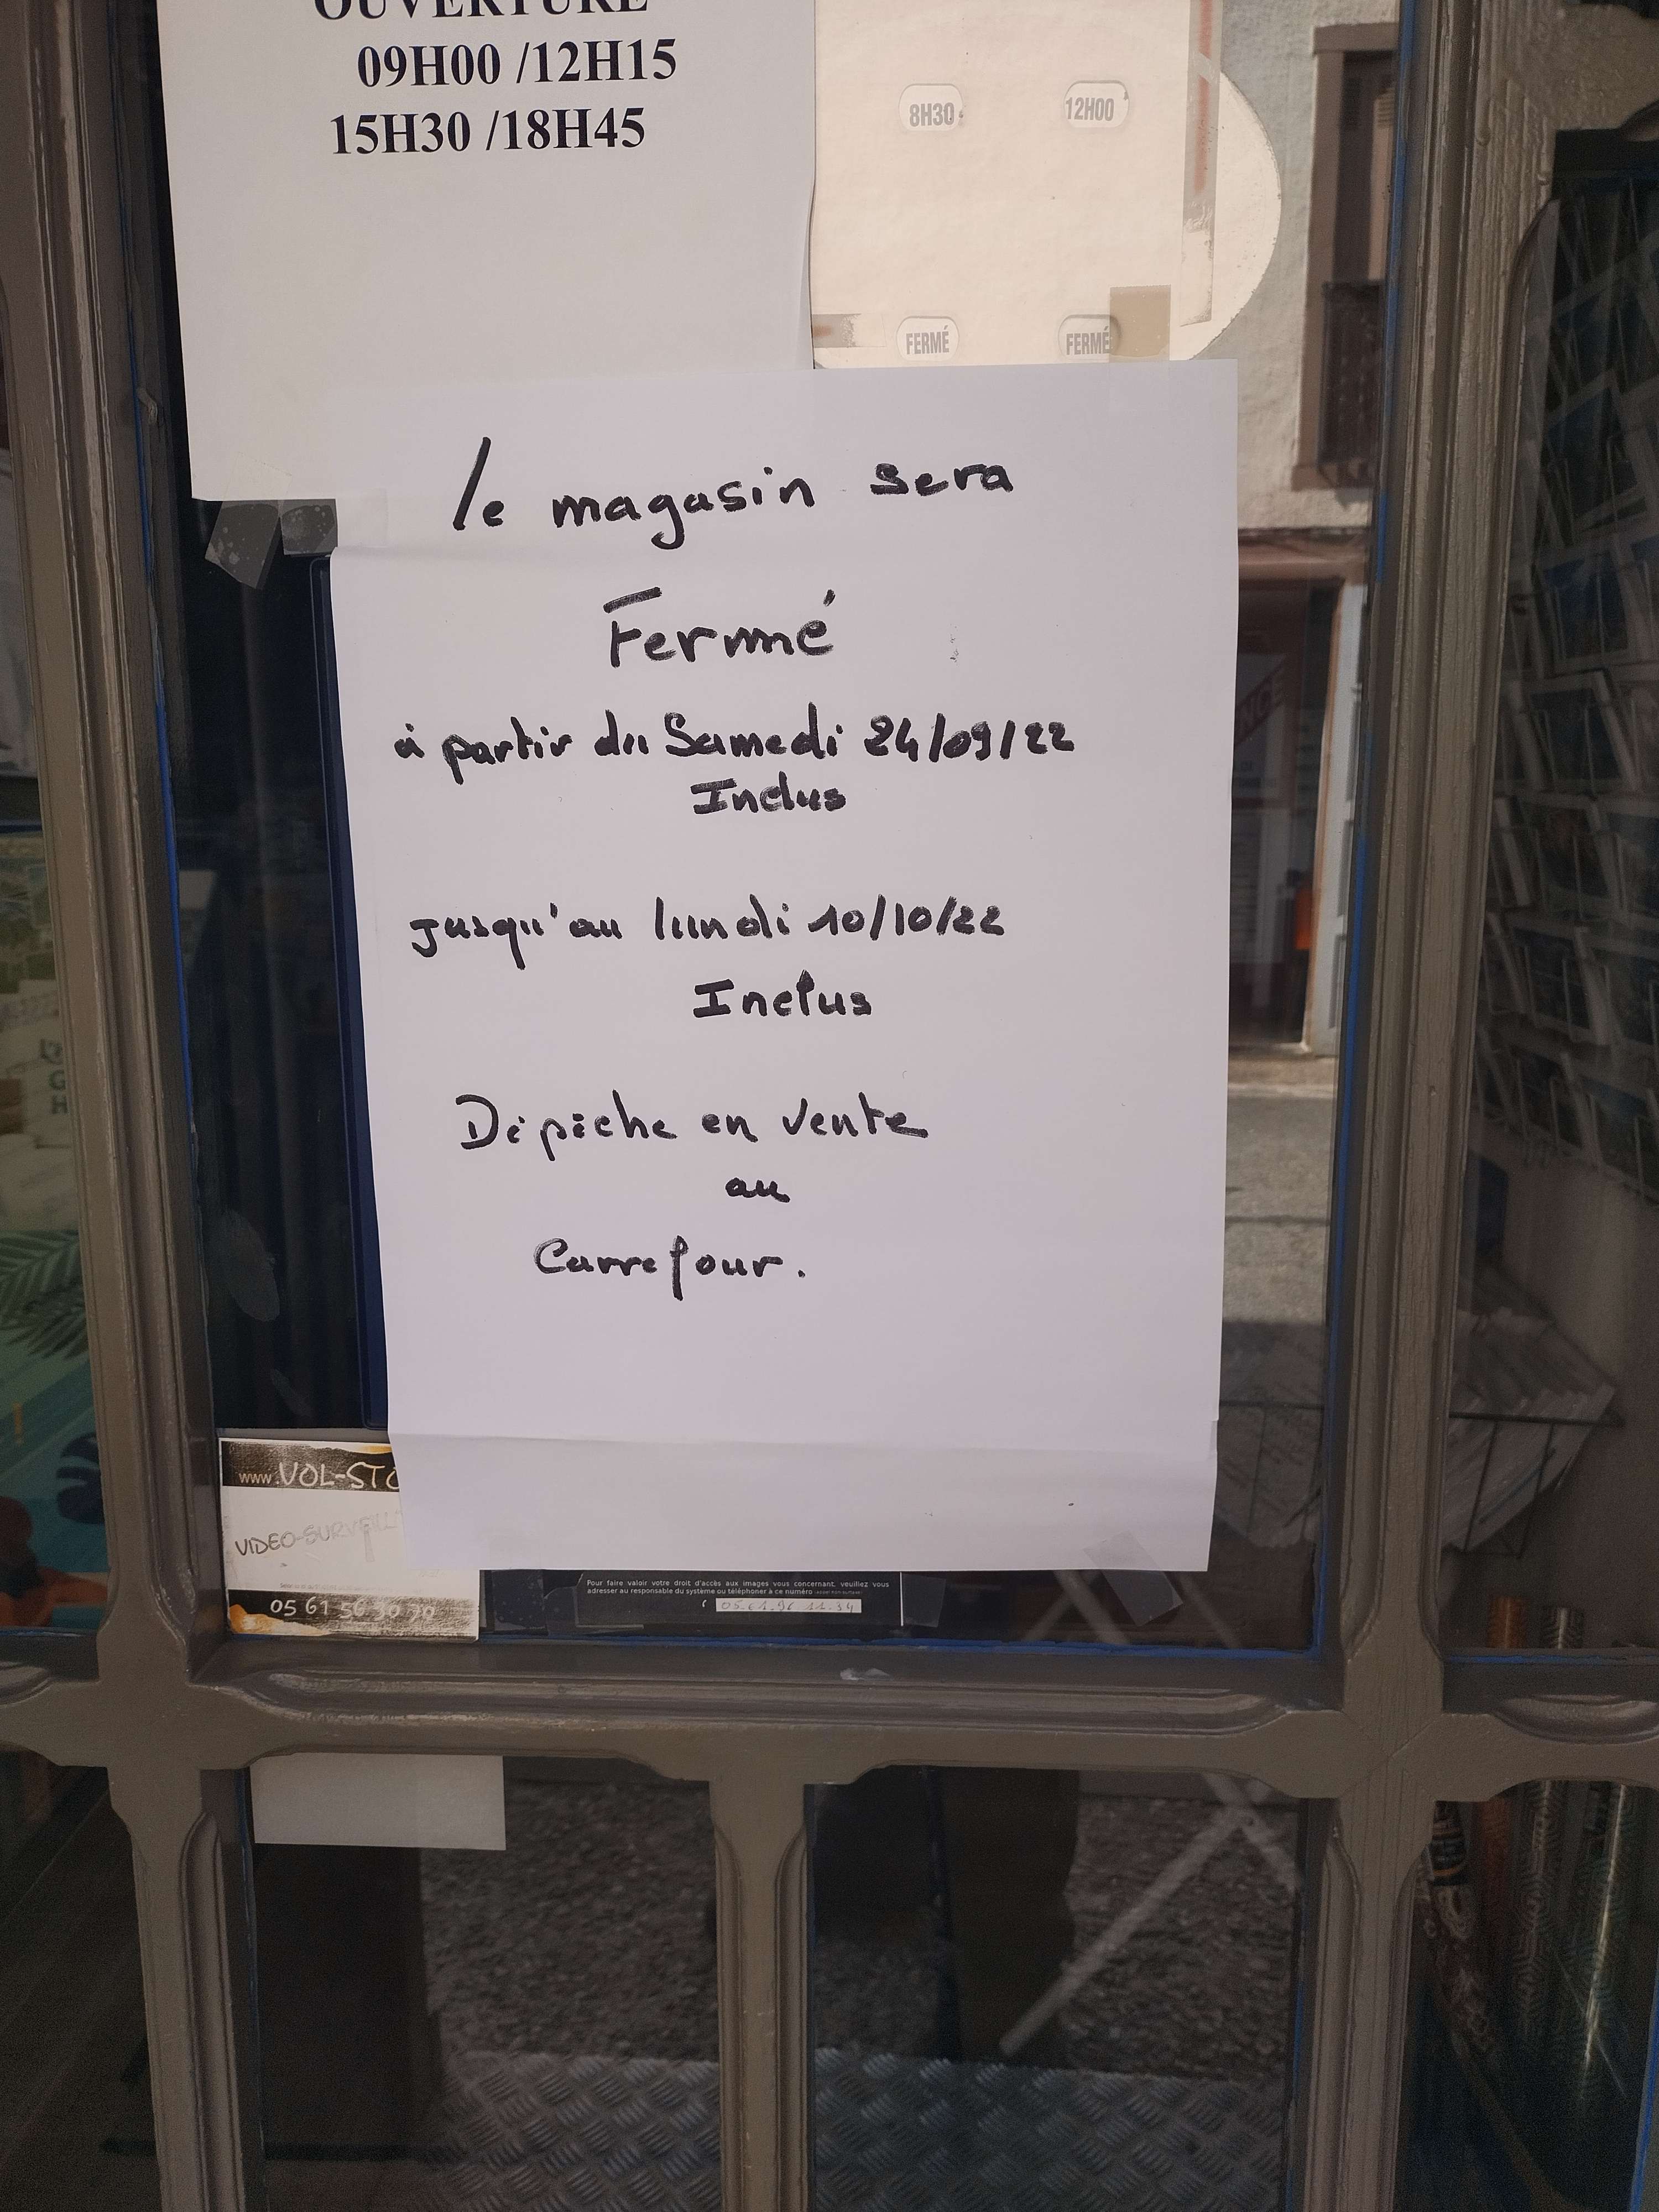 OUVERTURE
09H00 /12H15
15H30 /18H45
8H30 12H00
FERMÉ FERMÉ
le magasin sera
Fermé
à partir du Samedi 24/09/22
Inclus
jusqu'au lundi 10/10/22
Inclus
Dépèche en vente
au
Carrefour.
www.VOL-STO
VIDEO-SURVEILL
05 61 56
Pour faire valoir votre droit d'accès aux images vous concernant, veuillez vous
adresser au responsable du système ou téléphoner à ce numéro
05.61.96 11.34